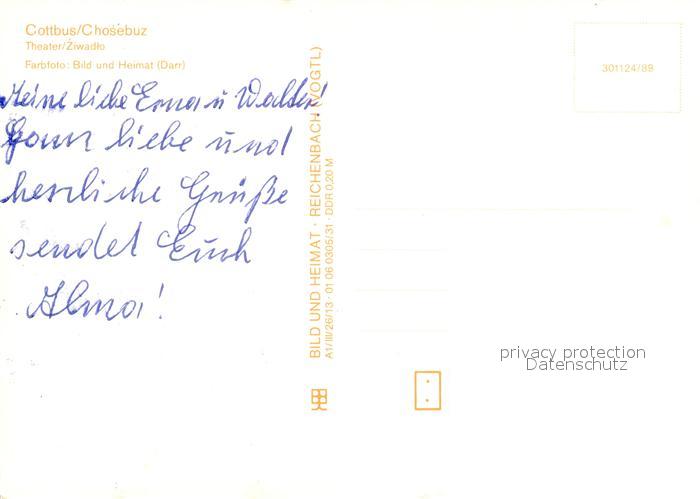 Cottbus/Chośebuz
Theater/Źiwadło
Farbfoto: Bild und Heimat (Darr)
Meine liebe Erna u Walter!
Ganz liebe und
herzliche Grüße
sendet Euch
Alma!
BILD UND HEIMAT · REICHENBACH (VOGTL)
A1/III/26/13 · 01 06 0305/31 · DDR 0,20 M
301124/89
privacy protection
Datenschutz